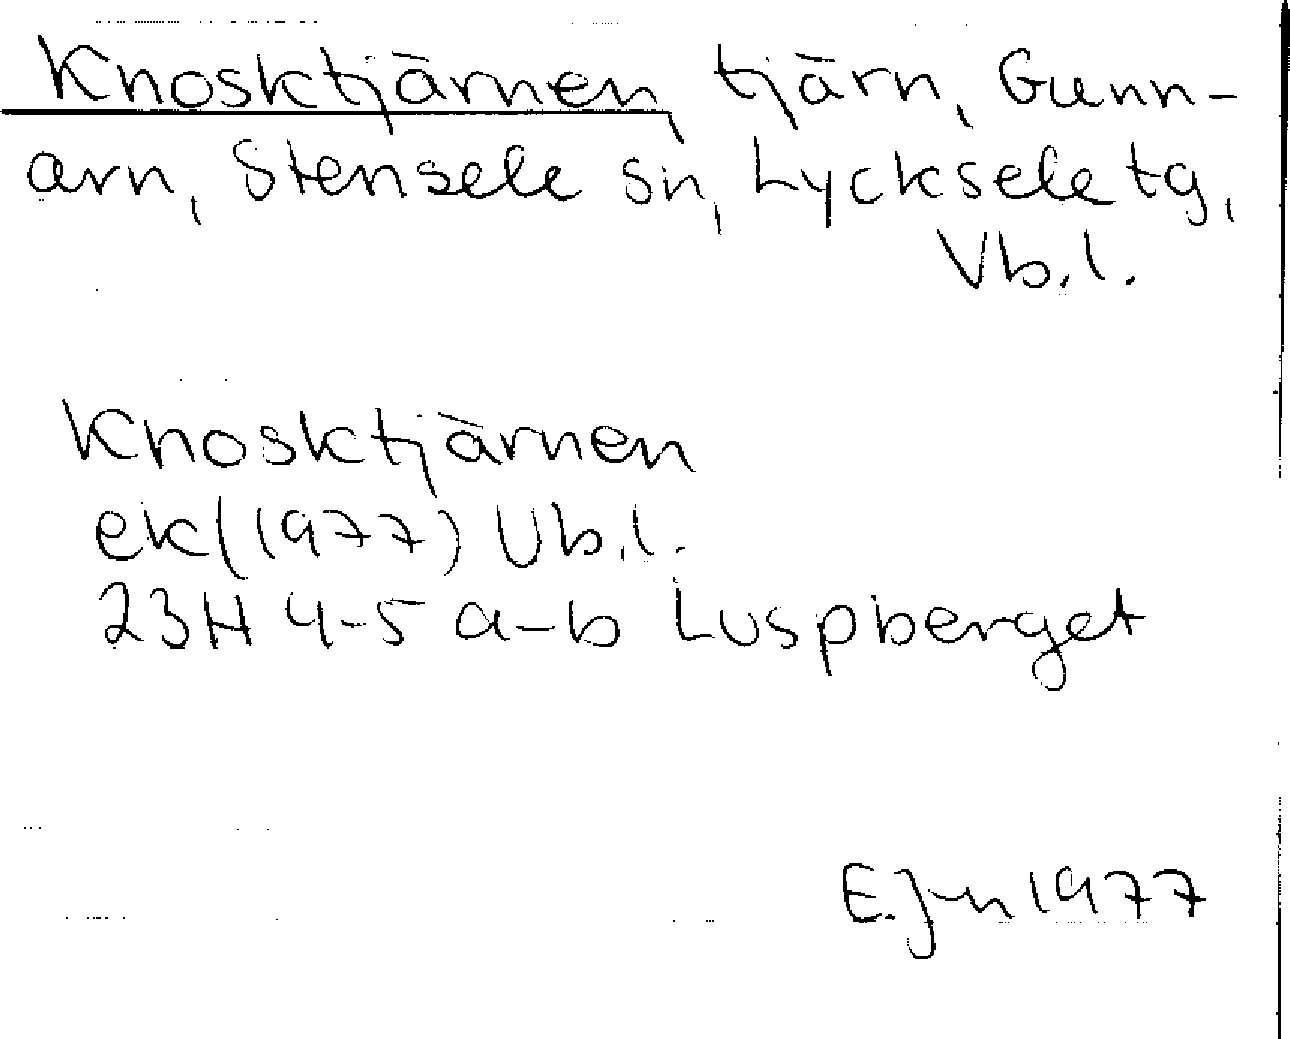 Knosktjärnen, tjärn, Gunn-
arn, Stensele sn, Lycksele tg,
Vb.l.
Knosktjärnen
ek (1977) Vb.l.
23H 4-5 a-b Luspberget
E.J-n 1977